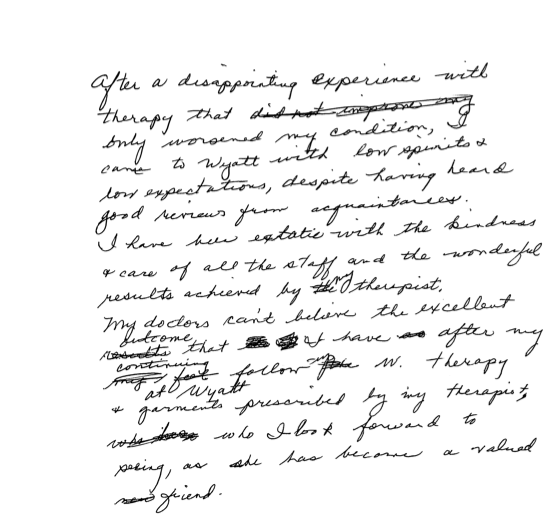 After a disappointing experience with
therapy that did not improve my
only worsened my condition, I
came to Wyatt with low spirits &
low expectations, despite having heard
good reviews from acquaintances.
I have been extatic with the kindness
& care of all the staff and the wonderful
results achieved by my therapist.
My doctors can't believe the excellent
outcome
results that I have after my
continuing
follow W. therapy
at Wyatt
& garments prescribed by my therapist,
who I look forward to
seeing, as she has become a valued
friend.